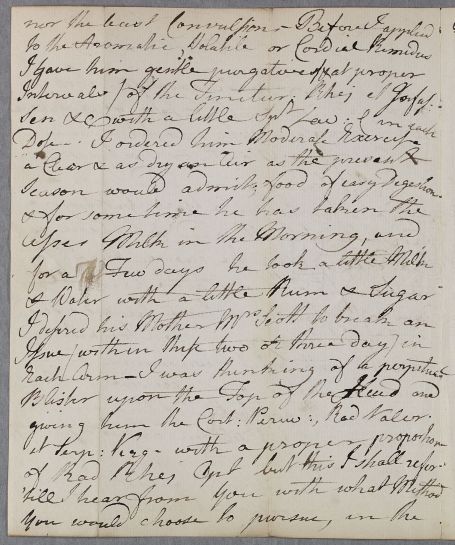 nor the least Convulsions - Before I applied
to the Aromatic, Volatile or Cordial Remedies
I gave him gentle purgatives (at proper
Intervals) of the Tinctur: Rhej et
Sen &c with a little Syr in each
Dose -. I ordered him Moderate Exercise
a Clear & as dry an Air as the present
Season would admit, food of easy Digestion
& for some time he has taken the
asses Milk in the Morning, and
for a Few days he took a little Milk
& Water with a little Rum & Sugar
I desired his Mother Mrs Scott to break an
Issue (within these two or three days) in
Each Arm - I was thinking of a perpetual
Blister upon the Top of the Head and
giving him the Cort: Peruv:, Rad Valer.
et Serp: Virg - with a proper proportion
of Rad Rhej but this I shall refer
till hear from You with what Method
You would choose to pursue, in the